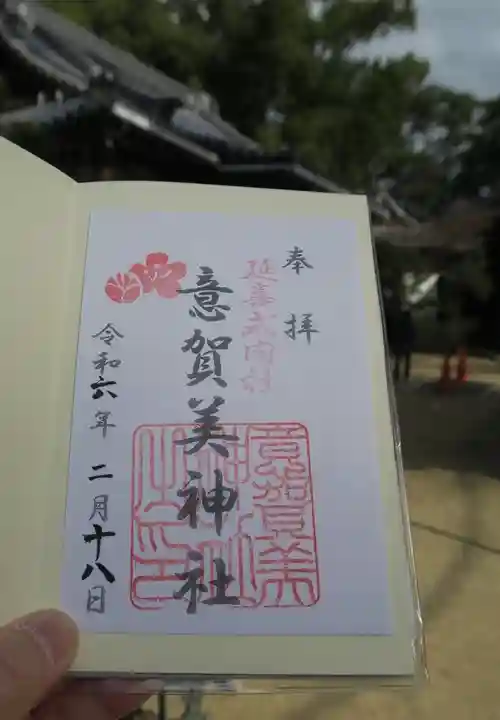 奉拝
延喜式内社
意賀美神社
意賀美神社之印
令和六年二月十八日